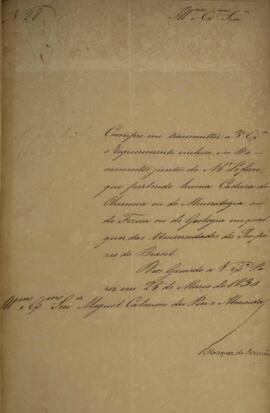 Nº 28
Illmo Exmo Senr
Cumpre me transmittir a V. Exª
o Requerimento incluso, e os Do-
cumentos juntos de Mr. Lefevre,
que pertende huma Cadeira de
Chimica ou de Mineralogia ou
de Fisica ou de Geologia em qual
quer das Universidades do Impe-
rio do Brasil.
Deos Guarde a V. Exª Pa-
riz em 26 de Março de 1830
Illmo e Exmo Senr Miguel Calmon du Pin e Almeida
Marquez de